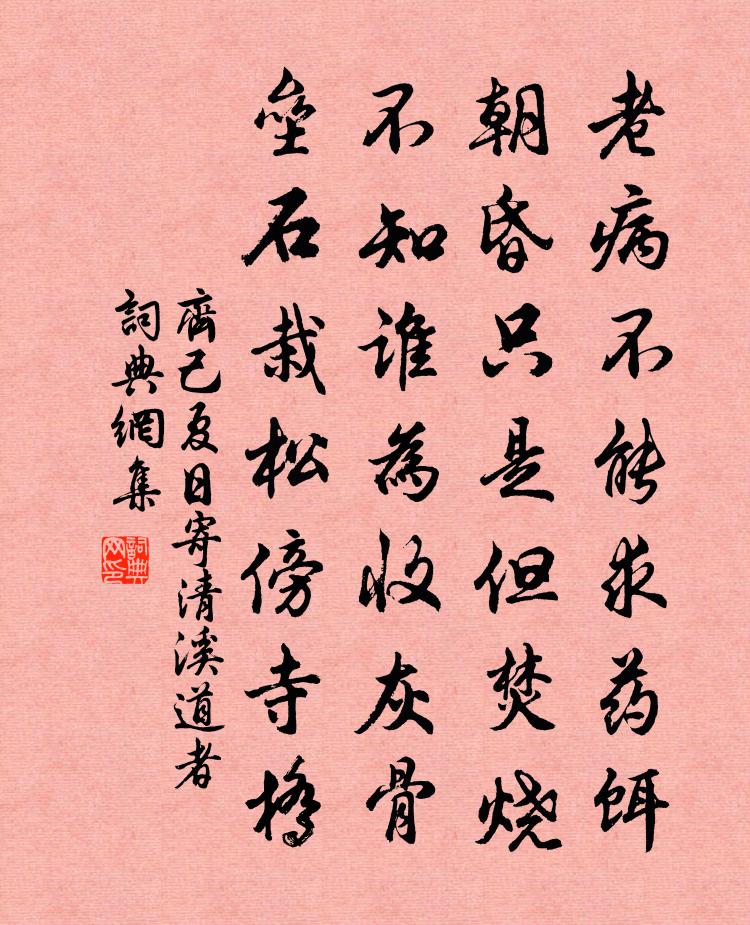 老病不能求药饵
朝昏只是但焚烧
不知谁為收灰骨
垒石栽松傍寺橋
齊己夏日寄清溪道者
詞典網集
詞典网印